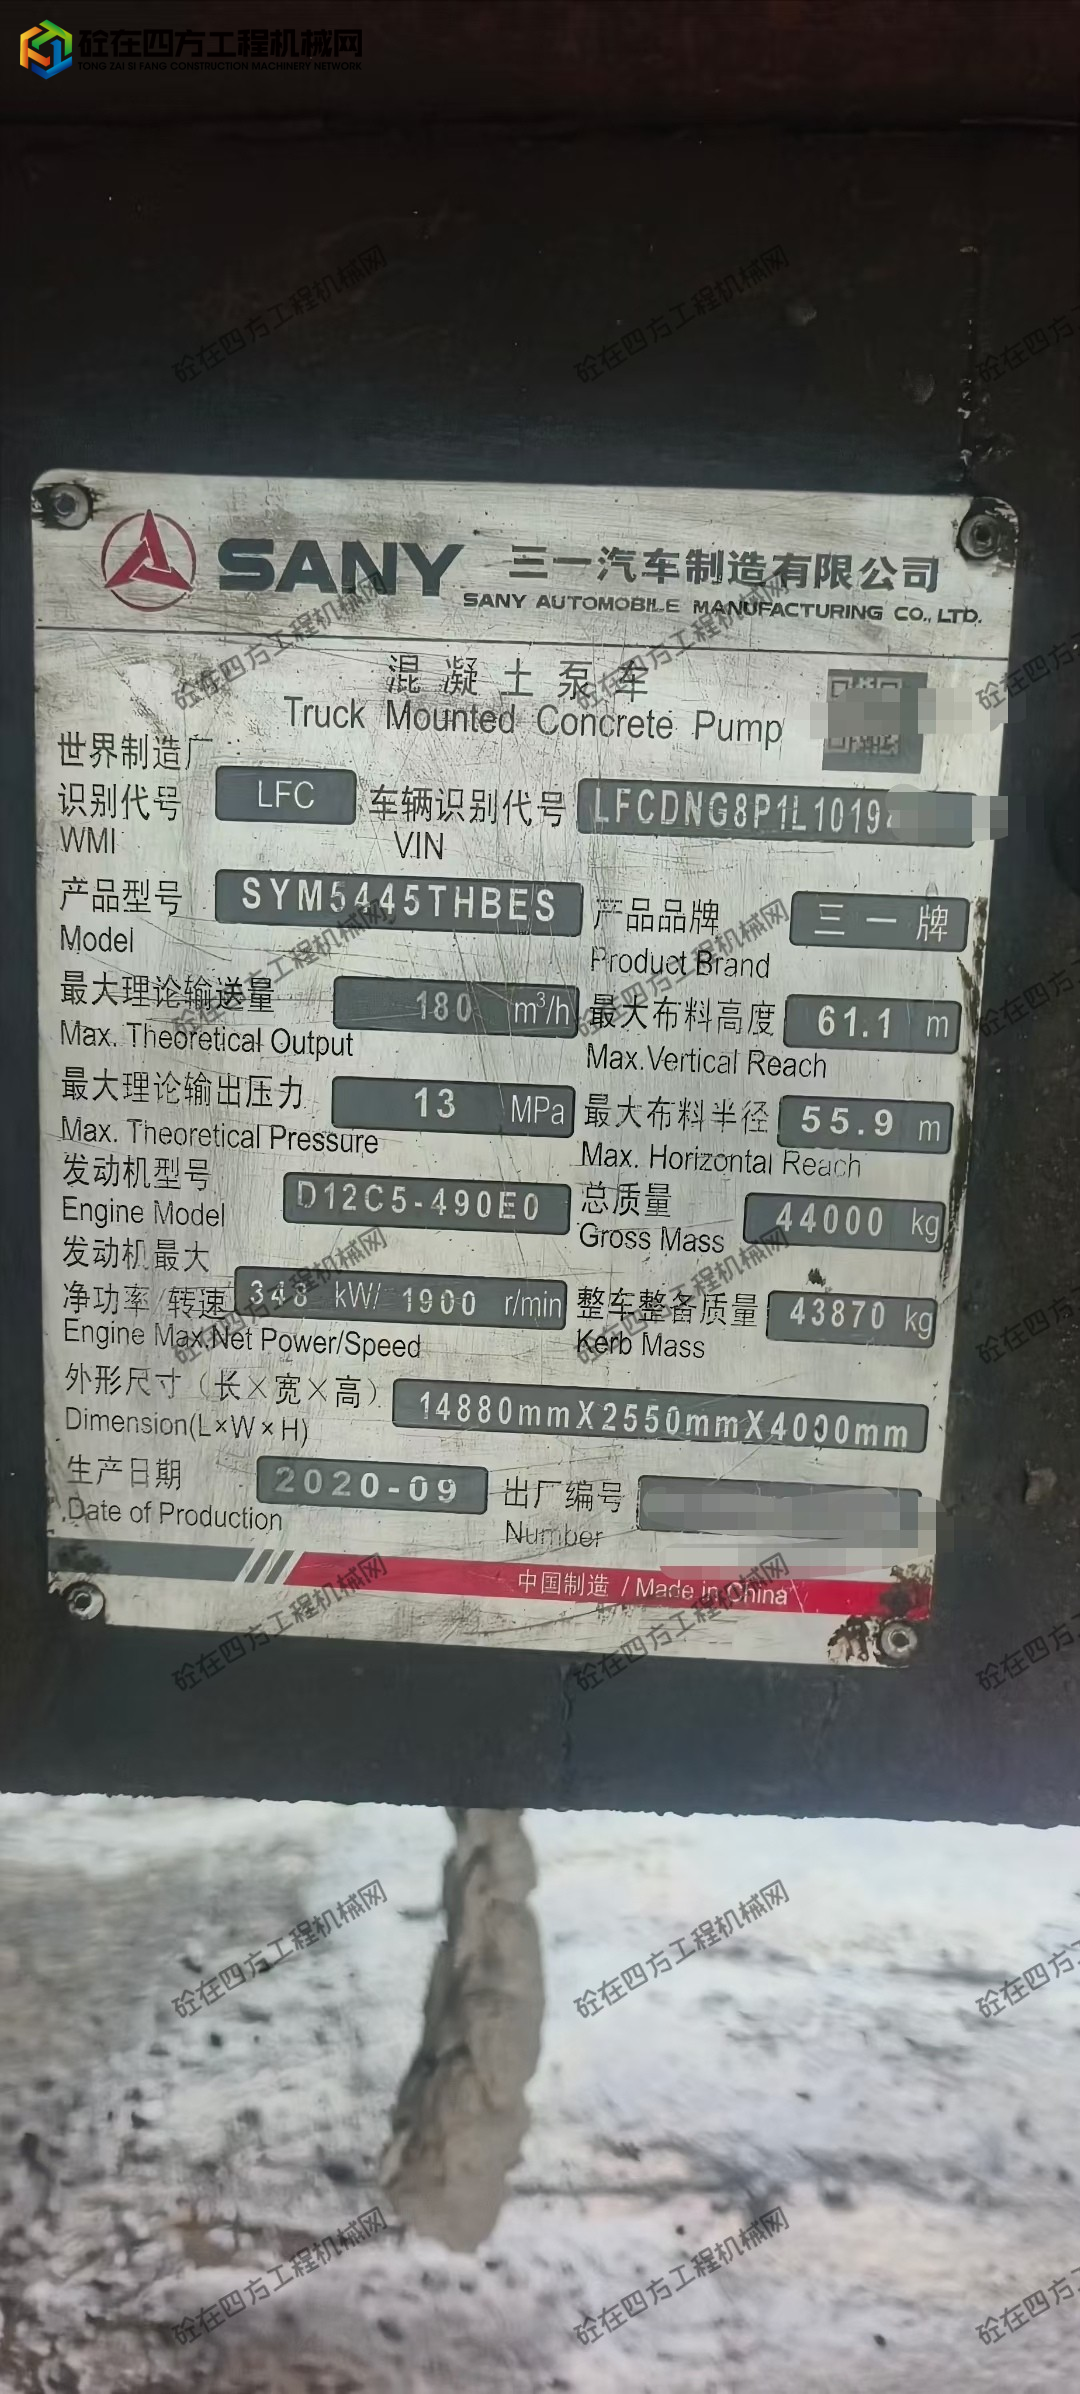 砼在四方工程机械网
TONG ZAI SI FANG CONSTRUCTION MACHINERY NETWORK
SANY 三一汽车制造有限公司
SANY AUTOMOBILE MANUFACTURING CO., LTD.
混凝土泵车
Truck Mounted Concrete Pump
世界制造厂
识别代号 LFC 车辆识别代号 LFCDNG8P1L1019
WMI VIN
产品型号 SYM5445THBES 产品品牌 三一牌
Model Product Brand
最大理论输送量 180 m³/h 最大布料高度 61.1 m
Max. Theoretical Output Max.Vertical Reach
最大理论输出压力 13 MPa 最大布料半径 55.9 m
Max. Theoretical Pressure Max. Horizontal Reach
发动机型号 D12C5-490E0 总质量 44000 kg
Engine Model Gross Mass
发动机最大
净功率/转速 348 kW/ 1900 r/min 整车整备质量 43870 kg
Engine Max.Net Power/Speed Kerb Mass
外形尺寸（长×宽×高） 14880mmX2550mmX4000mm
Dimension(L×W×H)
生产日期 2020-09 出厂编号
Date of Production Number
中国制造 / Made in China